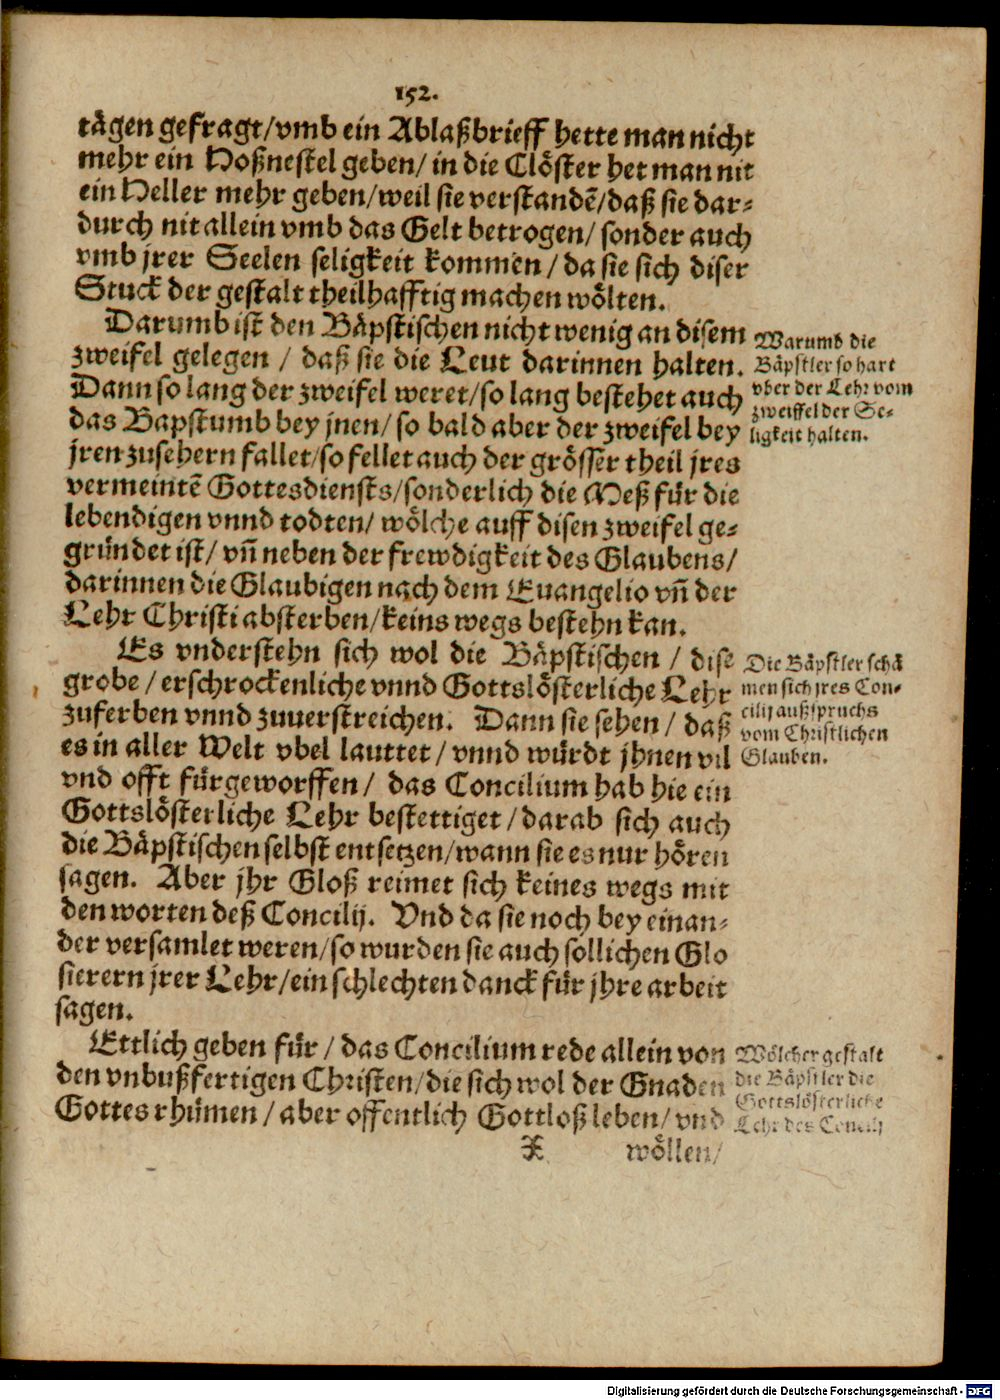 152.
tägen gefragt/vmb ein Ablaßbrieff hette man nicht
mehr ein Hoßnestel geben/ in die Clöster het man nit
ein Heller mehr geben/weil sie verstandē/daß sie dar-
durch nit allein vmb das Gelt betrogen/ sonder auch
vmb jrer Seelen seligkeit kommen/ da sie sich diser
Stuck der gestalt theilhafftig machen wölten.
Darumb ist den Bäpstischen nicht wenig an disem
zweifel gelegen / daß sie die Leut darinnen halten.
Dann so lang der zweifel weret/so lang bestehet auch
das Bapstumb bey jnen/ so bald aber der zweifel bey
jren zusehern fallet/so fellet auch der grösser theil jres
vermeintē Gottesdiensts/sonderlich die Meß für die
lebendigen vnnd todten/ wölche auff disen zweifel ge-
gründet ist/ vñ neben der frewdigkeit des Glaubens/
darinnen die Glaubigen nach dem Euangelio vñ der
Lehr Christi absterben/keins wegs bestehn kan.
Warumb die
Bäpstler so hart
vber der Lehr vom
zweiffel der Se-
ligkeit halten.
Es vnderstehn sich wol die Bäpstischen / dise
grobe / erschrockenliche vnnd Gottslösterliche Lehr
zuferben vnnd zuuerstreichen. Dann sie sehen / daß
es in aller Welt vbel lauttet / vnnd würdt jhnen vil
vnd offt fürgeworffen/ das Concilium hab hie ein
Gottslösterliche Lehr bestettiget / darab sich auch
die Bäpstischen selbst entsetzen/wann sie es nur hören
sagen. Aber jhr Gloß reimet sich keines wegs mit
den worten deß Concilij. Vnd da sie noch bey einan-
der versamlet weren/so wurden sie auch sollichen Glo
sierern jrer Lehr/ein schlechten danck für jhre arbeit
sagen.
Die Bäpstler schä
men sich jres Con-
cilij außspruchs
vom Christlichen
Glauben.
Ettlich geben für / das Concilium rede allein von
den vnbußfertigen Christen/die sich wol der Gnaden
Gottes rhümen / aber offentlich Gottloß leben/ vnd
Wölcher gestalt
die Bäpstler die
Gottslösterliche
Lehr des Concilij
X wöllen/
Digitalisierung gefördert durch die Deutsche Forschungsgemeinschaft - DFG